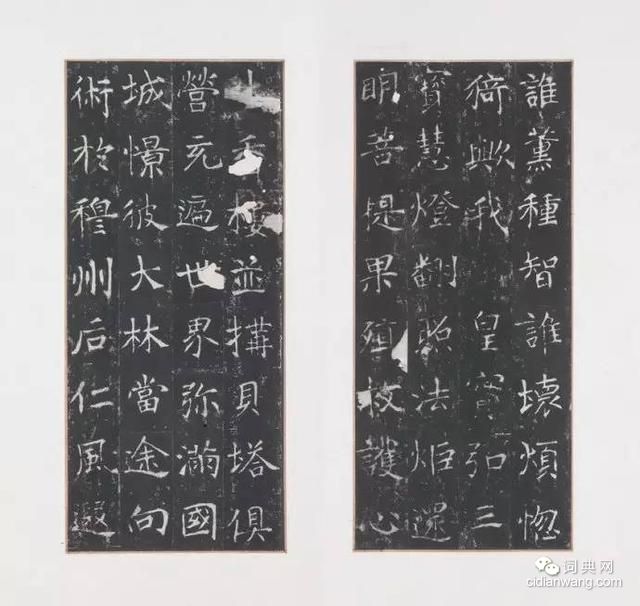 誰薰種智誰壞煩惱
猗歟我 皇寔弘三
寶慧燈翻照法炬還
明菩提果殖救護心
樓並構貝塔俱
營充遍世界弥滿國
城憬彼大林當途向
術於穆州后仁風遐
词典网
cidianwang.com